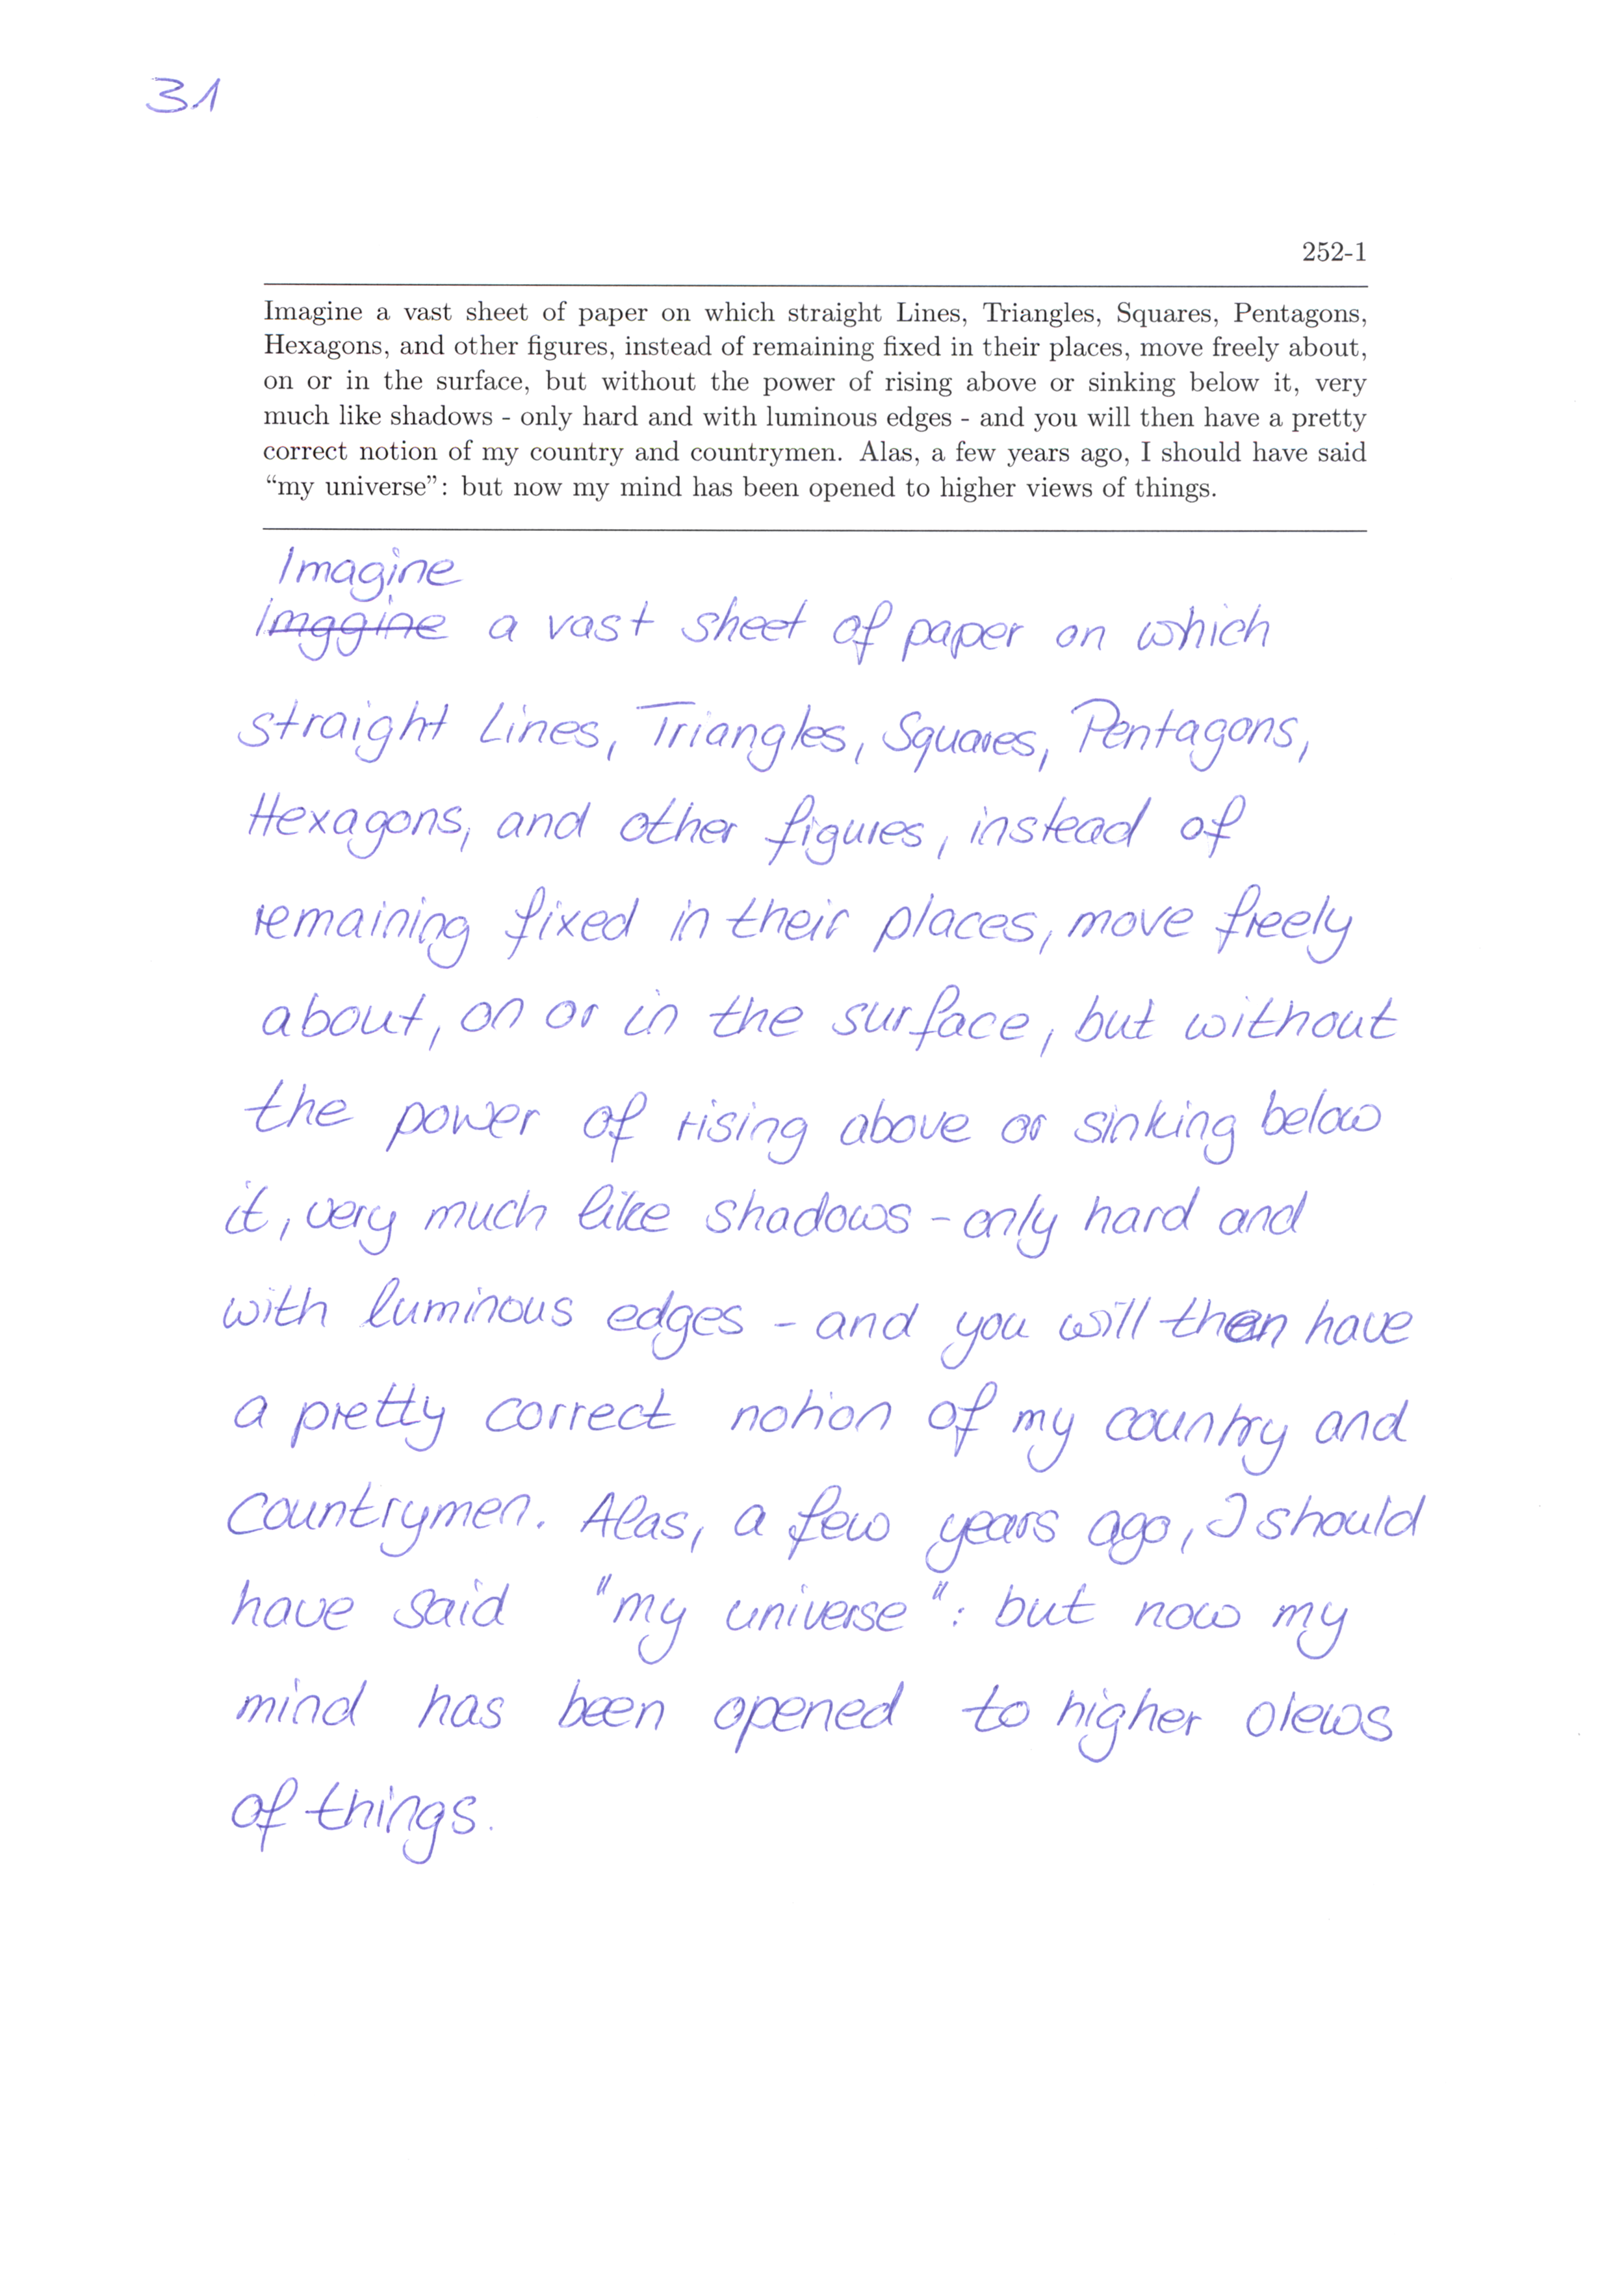 31
252-1
Imagine a vast sheet of paper on which straight Lines, Triangles, Squares, Pentagons,
Hexagons, and other figures, instead of remaining fixed in their places, move freely about,
on or in the surface, but without the power of rising above or sinking below it, very
much like shadows - only hard and with luminous edges - and you will then have a pretty
correct notion of my country and countrymen. Alas, a few years ago, I should have said
“my universe”: but now my mind has been opened to higher views of things.
Imagine
imagine a vast sheet of paper on which
straight Lines, Triangles, Squares, Pentagons,
Hexagons, and other figures, instead of
remaining fixed in their places, move freely
about, on or in the surface, but without
the power of rising above or sinking below
it, very much like shadows - only hard and
with luminous edges - and you will then have
a pretty correct notion of my country and
countrymen. Alas, a few years ago, I should
have said "my universe": but now my
mind has been opened to higher views
of things.